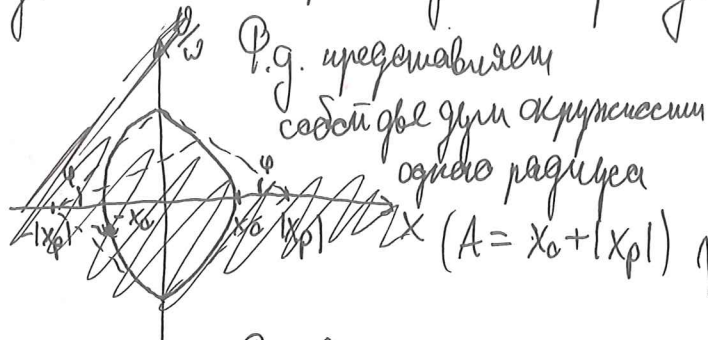 v/ω
Ф.д. представляет
собой две дуги окружности
одного радиуса
φ φ
-|xₚ| -x₀ x₀ |xₚ| X (A = x₀+|xₚ|)